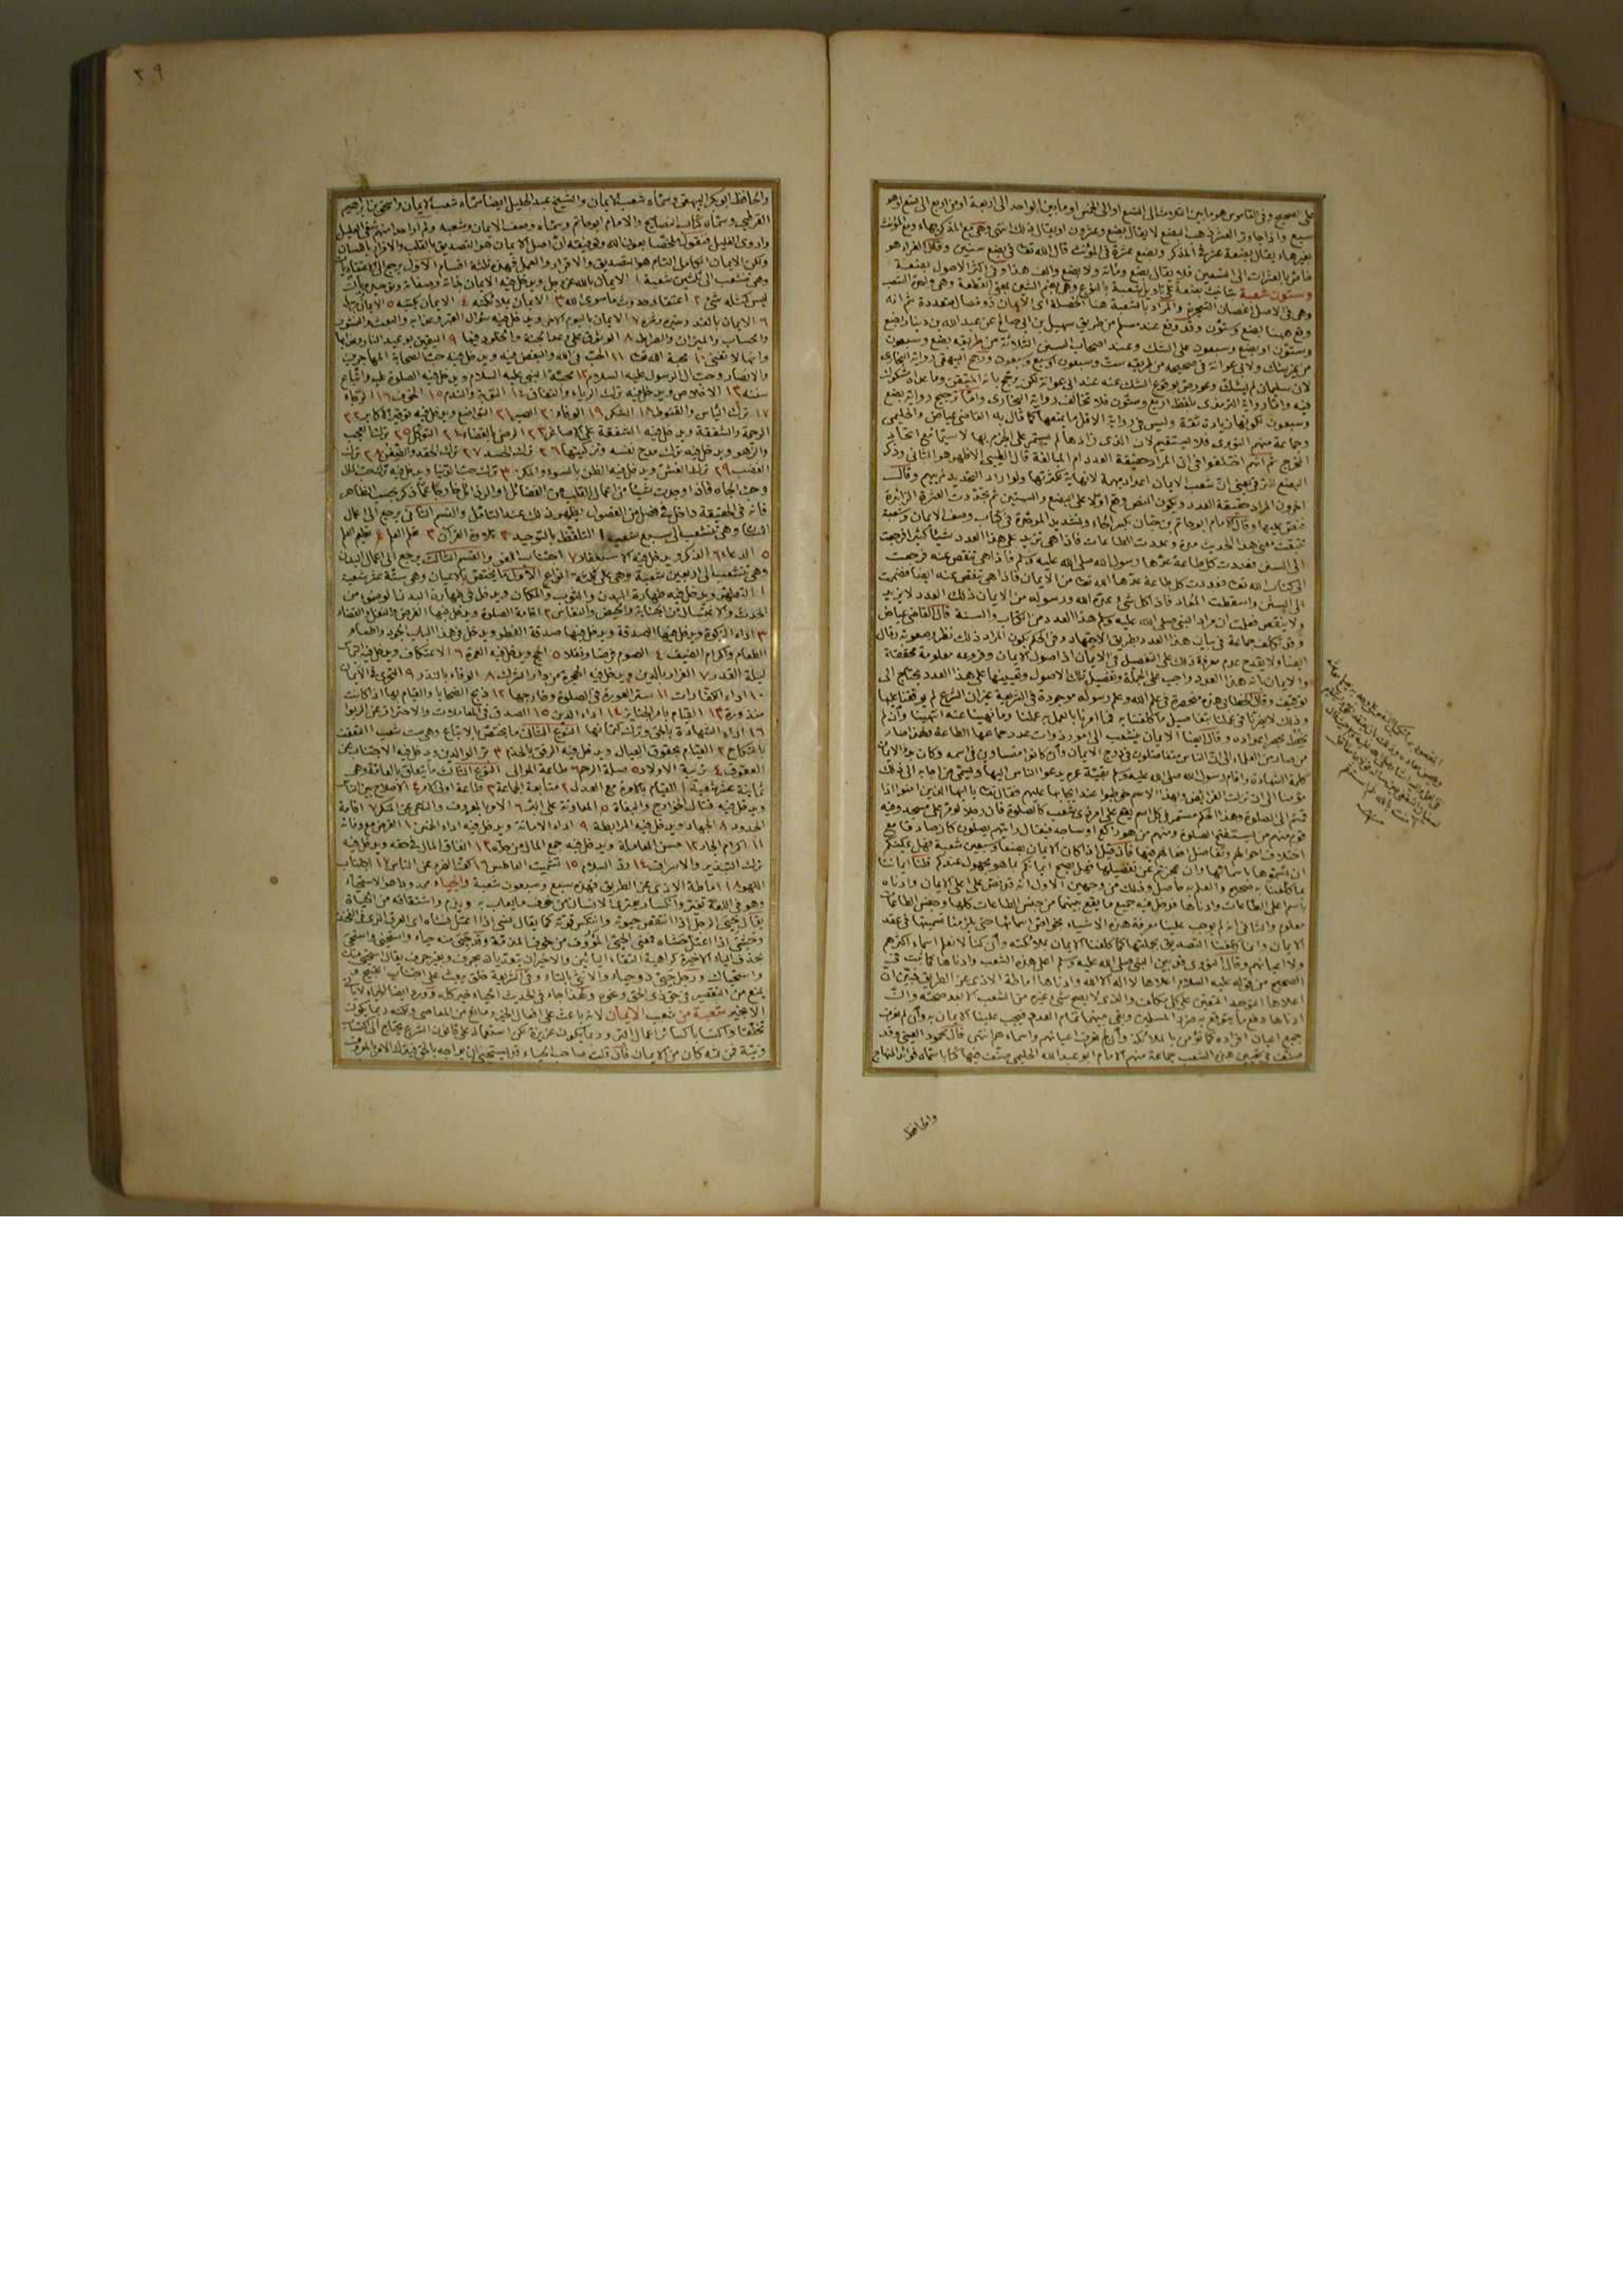 على الصحيح وفي القاموس هو ما بين الثلاث الى التسع او الى الخمس او ما بين الواحد الى اربعة او من اربع الى تسع او هو
سبع واذا جاوزت العشر ذهب البضع لا يقال بضع وعشرون او يقال ذلك انتهى وهي مع المذكر بهاء ومع المؤنث
بغيرها، يقال بضعة عشر في المذكر وبضع عشرة في المؤنث قال الله تعا في بضع سنين
وستون شعبة
وهي في الاصل اغصان الشجرة والمراد بالشعبة هنا الخصلة اى الايمان ذو خصال متعددة ثم انه
وقع ههنا بضع وستون وقد وقع عند مسلم من طريق سهيل بن ابي صالح عن عبد الله بن دينار بضع
وستون او بضع وسبعون على الشك وعند اصحاب السنن الثلاثة من طريقه بضع وسبعون
من غير شك ولابي عوانة في صحيحه من طريقه ست وسبعون او سبع وسبعون ورجح البيهقي رواية البخارى
لان سليمان لم يشك وعورض بوقوع الشك عنه عند ابي عوانة لكن يرجح بانه المتيقن وما عداه مشكوك
فيه واما رواية الترمذى بلفظ اربع وستون فلا تخالف رواية البخارى واما ترجيح رواية بضع
وسبعون لكونها زيادة ثقة وليس في رواية الاقل ما يمنعها كما قال به القاضي عياض والحليمى
وجماعة منهم النووى فلا يستقيم لان الذى زادها لم يستمر على الجزم بها لا سيما مع اتحاد
المخرج ثم انهم اختلفوا في ان المراد حقيقة العدد ام المبالغة قال الطيبي الاظهر هو الثاني وذكر
البضع للترقي يعني ان شعب الايمان اعداد مبهمة لا نهاية لكثرتها ولو اراد التحديد لم يبهم وقال
اخرون المراد حقيقة العدد ويكون النص وقع اولا على البضع والستين ثم تجددت العشرة الزائدة
فنص عليها وقال الامام ابو حاتم بن حبان بكسر الحاء وتشديد الموحدة في كتاب وصف الايمان وشعبه
تتبعت معنى هذا الحديث مدة وعددت الطاعات فاذا هي تزيد على هذا العدد شيئا كثيرا فرجعت
الى السنن فعددت كل طاعة عدها رسول الله صلى الله عليه وسلم فاذا هي تنقص عنه فرجعت
الى كتاب الله تعا فعددت كل طاعة عدها الله تعا من الايمان فاذا هي تنقص عنه ايضا فضممت
الى السنن واسقطت المعاد فاذا كل شئ عده الله ورسوله من الايمان ذلك العدد لا يزيد
ولا ينقص فعلمت ان مراد النبي صلى الله عليه وسلم هذا العدد من الكتاب والسنة قال القاضي عياض
وقد تكلف جماعة في بيان هذا العدد بطريق الاجتهاد وفي الحكم بكون المراد ذلك نظر وصعوبة وقال
ايضا ولا يقدح عدم معرفة ذلك على التفصيل في الايمان اذ اصول الايمان وفروعه معلومة محققة
والايمان بانه هذا العدد واجب على الجملة وتفصيل تلك الاصول وتعيينها على هذا العدد يحتاج الى
توقيف وقال الخطابي هذه منحصرة في علم الله وعلم رسوله موجودة في الشريعة غير ان الشرع لم يوقفنا عليها
وذلك لا يضرنا في عملنا بتفاصيل ما كلفنا به فما امرنا بالعمل به عملنا وما نهينا عنه انتهينا وان لم
نحط بحصر اعداده وقال ايضا الايمان يتشعب الى امور ذوات عدد جماعها الطاعة ولهذا صار
من صار من العلماء الى ان الناس يتفاضلون في درج الايمان وان كانوا متساوين في اسمه وكان بدء الايمان
كلمة الشهادة واقام رسول الله صلى الله عليه وسلم بقية عمره يدعو الناس اليها وسمى من اجابه الى ذلك
مؤمنا الى ان نزلت الفرائض وبهذا الاسم خوطبوا عند ايجابها عليهم فقال تعا يا ايها الذين امنوا اذا
قمتم الى الصلوة وهذا الحكم مستمر في كل اسم يقع على امر ذى شعب كالصلوة فان رجلا لو مر على مسجد وفيه
قوم منهم من يستفتح الصلوة ومنهم من هو راكع او ساجد فقال رايتهم يصلون كان صادقا مع
اختلاف احوالهم وتفاضل افعالهم فيها فان قيل اذا كان الايمان بضعا وسبعين شعبة فهل يمكنكم
ان تسموها باسمائها وان عجزتم عن تفصيلها فهل يصح ايمانكم بما هو مجهول عندكم قلنا ايماننا
بما كلفناه صحيح والعلم به حاصل وذلك من وجهين الاول انه قد نص على اعلى الايمان وادناه
باسم اعلى الطاعات وادناها فدخل فيه جميع ما يقع بينهما من جنس الطاعات كلها وجنس الطاعات
معلوم والثاني انه لم يوجب علينا معرفة هذه الاشياء بخواص اسمائها حتى يلزمنا تسميتها في عقد
الايمان وانما كلفنا التصديق بجملتها كما كلفنا الايمان بملائكته وان كنا لا نعلم اسماء اكثرهم
ولا اعيانهم وقال النووى قد بين النبي صلى الله عليه وسلم اعلى هذه الشعب وادناها كما ثبت في
الصحيح من قوله عليه السلام اعلاها لا اله الا الله وادناها اماطة الاذى عن الطريق فبين ان
اعلاها التوحيد المتعين على كل مكلف والذى لا يصح شئ غيره من الشعب الا بعد صحته وان
ادناها دفع ما يتوقع به ضرر المسلمين وبقي بينهما تمام العدد فيجب علينا الايمان به وان لم نعرف
جميع اعيان افراده كما نؤمن بالملائكة وان لم نعرف اعيانهم واسماءهم انتهى قال محمود العيني وقد
صنف في تعيين هذه الشعب جماعة منهم الامام ابو عبد الله الحليمي صنف فيها كتابا سماه فوائد المنهاج
والحافظ
٢٩
والحافظ ابو بكر البيهقي وسماه شعب الايمان والشيخ عبد الجليل ايضا سماه شعب الايمان واسحق بن ابراهيم
القرطبي وسماه كتاب النصايح والامام ابو حاتم وسماه وصف الايمان وشعبه ولم ار احدا منهم شفى العليل
واروى الغليل فنقول ملخصا بعون الله وتوفيقه ان اصل الايمان هو التصديق بالقلب والاقرار باللسان
ولكن الايمان الكامل التام هو التصديق والاقرار والعمل فهذه ثلثة اقسام الاول يرجع الى الاعتقاديات
وهي تتشعب الى ثلثين شعبة ١ الايمان بالله عز وجل ويدخل فيه الايمان بذاته وصفاته وتوحيده بان
ليس كمثله شئ ٢ اعتقاد حدوث ما سوى الله ٣ الايمان بملائكته ٤ الايمان بكتبه ٥ الايمان برسله
٦ الايمان بالقدر خيره وشره ٧ الايمان باليوم الاخر ويدخل فيه سؤال القبر وعذابه والبعث والنشور
والحساب والميزان والصراط ٨ الوثوق على وعد الجنة والخلود فيها ٩ اليقين بوعيد النار وعذابها
وانها لا تفنى ١٠ محبة الله تعا ١١ الحب في الله والبغض فيه ويدخل فيه حب الصحابة المهاجرين
والانصار وحب ال الرسول عليه السلام ١٢ محبة النبي عليه السلام ويدخل فيه الصلوة عليه واتباع
سنته ١٣ الاخلاص ويدخل فيه ترك الرياء والنفاق ١٤ التوبة والندم ١٥ الخوف ١٦ الرجاء
١٧ ترك الياس والقنوط ١٨ الشكر ١٩ الوفاء ٢٠ الصبر ٢١ التواضع ويدخل فيه توقير الاكابر ٢٢
الرحمة والشفقة ويدخل فيه الشفقة على الاصاغر ٢٣ الرضى بالقضاء ٢٤ التوكل ٢٥ ترك العجب
والزهو ويدخل فيه ترك مدح نفسه وتزكيتها ٢٦ ترك الحسد ٢٧ ترك الحقد والضغن ٢٨ ترك
الغضب ٢٩ ترك الغش ويدخل فيه الظن بالسوء والمكر ٣٠ ترك حب الدنيا ويدخل فيه ترك حب المال
وحب الجاه فاذا وجدت شيئا من اعمال القلب من الفضائل او الرذائل خارجا عما ذكر بحسب الظاهر
فانه في الحقيقة داخل في فصل من الفصول يظهر ذلك عند التامل والقسم الثاني يرجع الى اعمال
اللسان وهي تتشعب الى سبع شعب ١ التلفظ بالتوحيد ٢ تلاوة القرآن ٣ تعلم العلم ٤ تعليم العلم
٥ الدعاء ٦ الذكر ويدخل فيه الاستغفار ٧ اجتناب اللغو والقسم الثالث يرجع الى اعمال البدن
وهي تتشعب الى اربعين شعبة وهي على ثلثة انواع الاول ما يختص بالاعيان وهي ستة عشر شعبة
١ التطهر ويدخل فيه طهارة البدن والثوب والمكان ويدخل في طهارة البدن الوضوء من
الحدث والاغتسال من الجنابة والحيض والنفاس ٢ اقامة الصلوة ويدخل فيها الفرض والنفل والقضاء
٣ اداء الزكوة ويدخل فيها الصدقة ويدخل فيها صدقة الفطر ويدخل في هذا الباب الجود واطعام
الطعام واكرام الضيف ٤ الصوم فرضا ونفلا ٥ الحج ويدخل فيه العمرة ٦ الاعتكاف ويدخل فيه التماس
ليلة القدر ٧ الفرار بالدين ويدخل فيه الهجرة من دار الشرك ٨ الوفاء بالنذر ٩ التحرى في الايمان
١٠ اداء الكفارات ١١ ستر العورة في الصلوة وخارجها ١٢ ذبح الضحايا والقيام بها اذا كانت
منذورة ١٣ القيام بامر الجنائز ١٤ اداء الدين ١٥ الصدق في المعاملات والاحتراز عن الربوا
١٦ اداء الشهادة بالحق وترك كتمانها النوع الثاني ما يختص بالاتباع وهي ست شعب ١ التعفف
بالنكاح ٢ القيام بحقوق العيال ويدخل فيه الرفق بالخدم ٣ بر الوالدين ويدخل فيه الاجتناب عن
العقوق ٤ تربية الاولاد ٥ صلة الرحم ٦ طاعة الموالى النوع الثالث ما يتعلق بالعامة وهي
ثمانية عشر شعبة ١ القيام بالامرة مع العدل ٢ متابعة الجماعة ٣ طاعة اولى الامر ٤ الاصلاح بين الناس
ويدخل فيه قتال الخوارج والبغاة ٥ المعاونة على البر ٦ الامر بالمعروف والنهي عن المنكر ٧ اقامة
الحدود ٨ الجهاد ويدخل فيه المرابطة ٩ اداء الامانة ويدخل فيه اداء الخمس ١٠ القرض مع وفائه
١١ اكرام الجار ١٢ حسن المعاملة ويدخل فيه جمع المال من حله ١٣ انفاق المال في حقه ويدخل فيه
ترك التبذير والاسراف ١٤ رد السلام ١٥ تشميت العاطس ١٦ كف الضرر عن الناس ١٧ اجتناب
اللهو ١٨ اماطة الاذى عن الطريق فهذه سبع وسبعون شعبة والحياء ممدودا هو الاستحياء
وهو في اللغة تغير وانكسار يعترى الانسان من خوف ما يعاب به ويذم واشتقاقه من الحياة
يقال حيي الرجل اذا انتقص حيوته وانتكس قوته كما يقال نسي اذا اعتل نساه اى العرق الذى في الفخذ
وحشي اذا اعتل حشاه فمعنى الحيي المؤوف من خوف المذمة وقد حيي منه حياء واستحيى واستحى
بحذف الياء الاخيرة كراهية التقاء اليائين والاخيران يتعديان بحرف وبغير حرف يقال استحيى منك
واستحياك ورجل حيي ذو حياء والانثى بالتاء وفي الشريعة خلق يبعث على اجتناب القبيح و
يمنع من التقصير في حق ذى الحق ونحوه ولهذا جاء في الحديث الحياء خير كله وورد ايضا الحياء لا ياتي
الا بخير شعبة من شعب الايمان لانه باعث على افعال الخير ومانع من المعاصى ولكنه ربما يكون
تخلقا واكتسابا كسائر اعمال البر وربما يكون غريزة لكن استعماله على قانون الشرع يحتاج الى اكتساب
ونية فمن ثمه كان من الايمان فان قلت صاحب الحياء قد يستحيى ان يواجه بالحق فيترك الامر بالمعروف